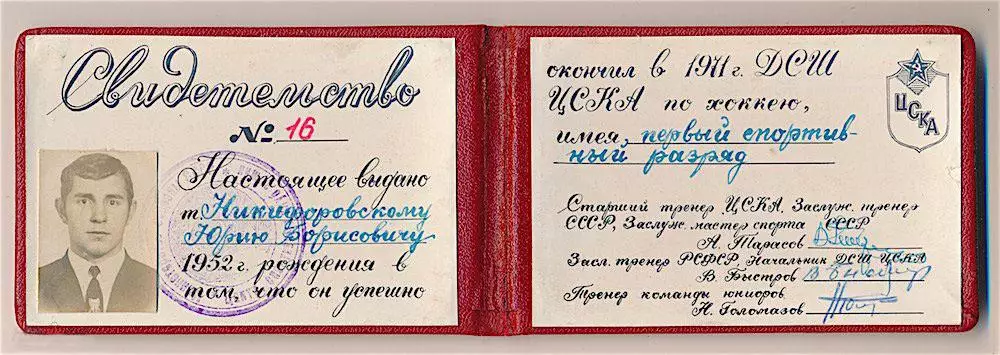 Свидетельство
№ 16
Настоящее выдано
т. Никифоровскому
Юрию Борисовичу
1952 г. рождения в
том, что он успешно
окончил в 1971 г. ДСШ
ЦСКА по хоккею,
имея, первый спортив-
ный разряд
ЦСКА
Старший тренер ЦСКА, Заслуж. тренер
СССР, Заслуж. мастер спорта СССР
А. Тарасов
Засл. тренер РСФСР, Начальник ДСШ ЦСКА
В. Быстров
Тренер команды юниоров
Н. Голомазов